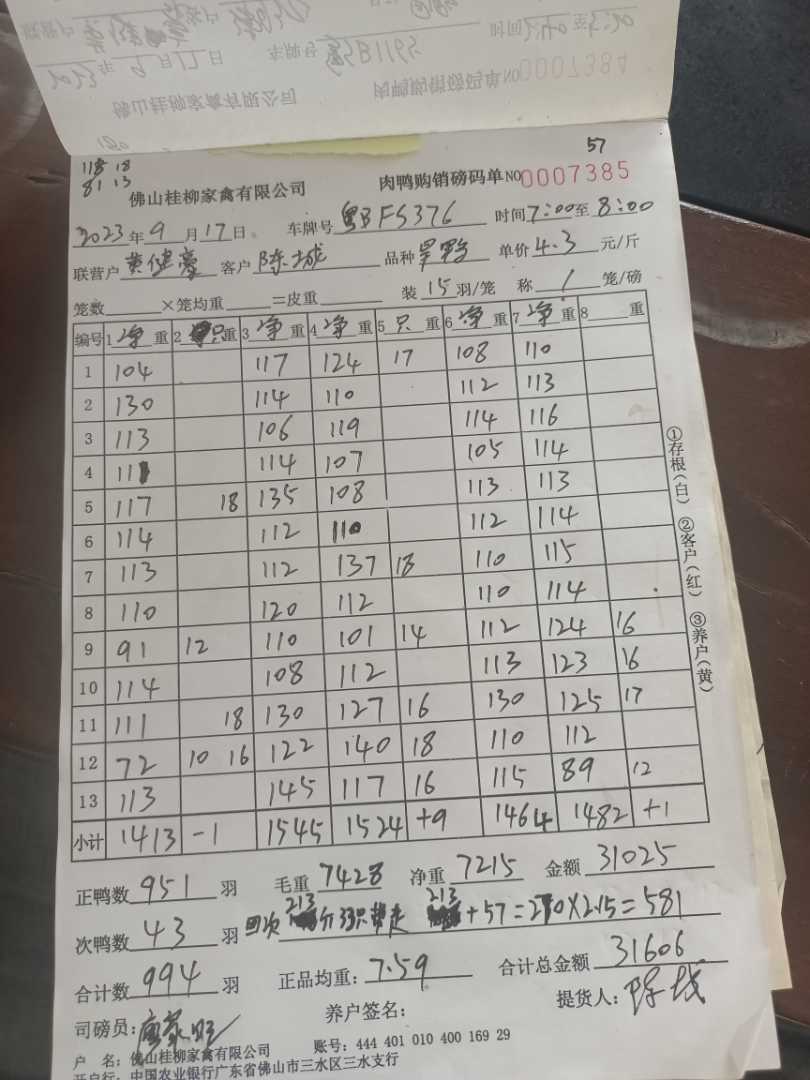 NO0007384
118 18
81 13
57
佛山桂柳家禽有限公司 肉鸭购销磅码单NO0007385
2023年9月17日 车牌号 粤BFS376 时间7:00至8:00
联营户 黄健豪 客户 陈城 品种 旱鸭 单价4.3元/斤
笼数 ×笼均重 =皮重 装15羽/笼 称 1 笼/磅
编号 1净重 2只重 3净重 4净重 5只重 6净重 7净重 8 重
1 104 117 124 17 108 110
2 130 114 110 112 113
3 113 106 119 114 116
4 111 114 107 105 114
5 117 18 135 108 113 113
6 114 112 110 112 114
7 113 112 137 18 110 115
8 110 120 112 110 114
9 91 12 110 101 14 112 124 16
10 114 108 112 113 123 16
11 111 18 130 127 16 130 125 17
12 72 10 16 122 140 18 110 112
13 113 145 117 16 115 89 12
小计 1413 -1 1545 1524 +9 1464 1482 +1
①存根(白) ②客户(红) ③养户(黄)
正鸭数951羽 毛重7428 净重7215 金额31025
次鸭数43羽 213 213 +57=270×215=581
合计数994羽 正品均重:7.59 合计总金额31606
司磅员: 养户签名: 提货人:陈城
户 名:佛山桂柳家禽有限公司 账号:444 401 010 400 169 29
开户行:中国农业银行广东省佛山市三水区三水支行